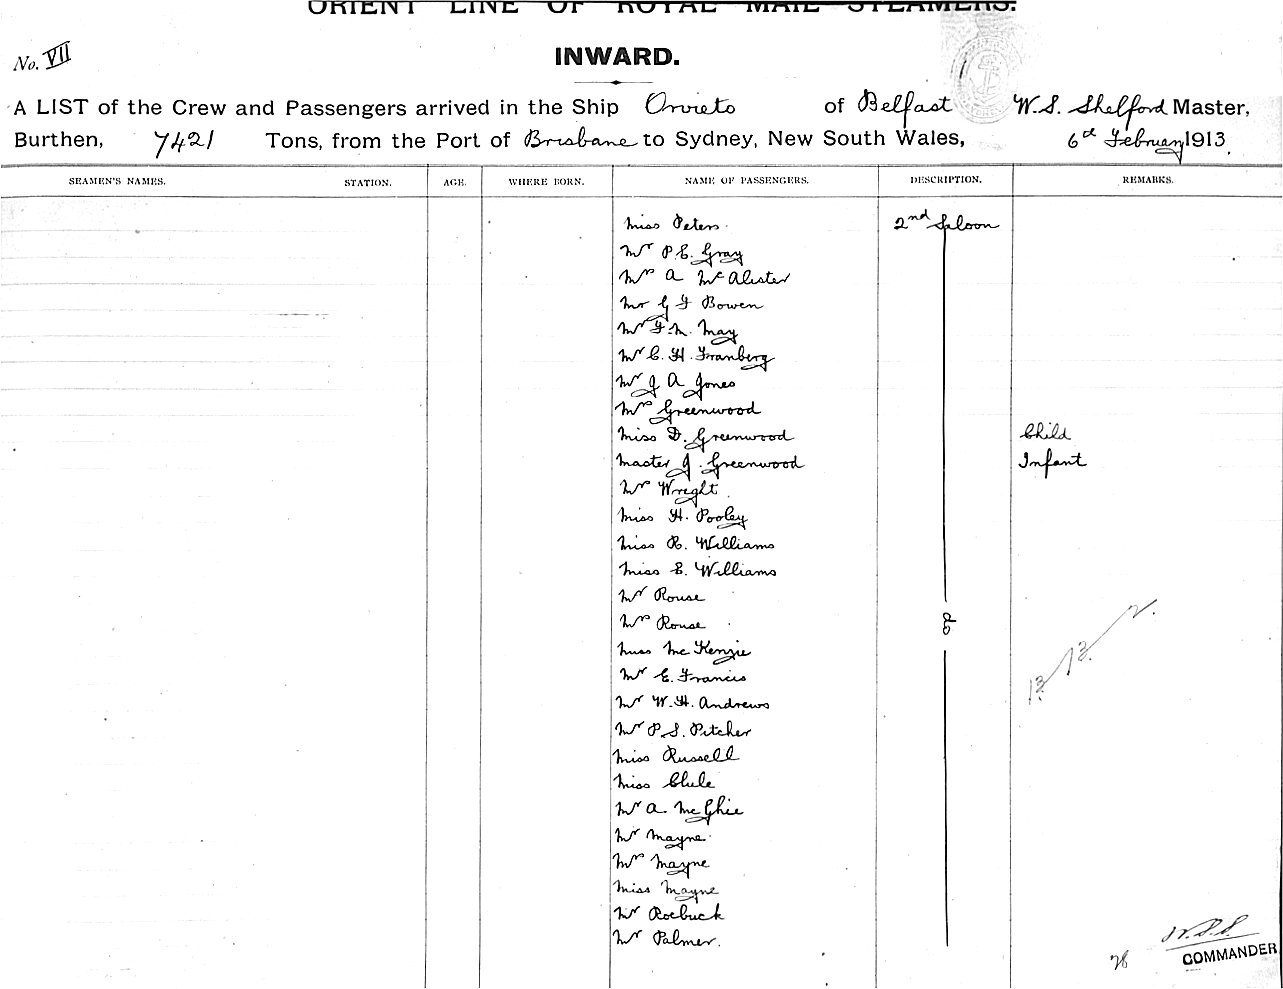 ORIENT LINE OF ROYAL MAIL STEAMERS.
No. VII
INWARD.
A LIST of the Crew and Passengers arrived in the Ship Orvieto of Belfast W.S. Shelford Master,
Burthen, 7421 Tons, from the Port of Brisbane to Sydney, New South Wales, 6th February 1913.
SEAMEN'S NAMES. STATION. AGE. WHERE BORN. NAME OF PASSENGERS. DESCRIPTION. REMARKS.
Miss Peters 2nd Saloon
Mr P.E. Gray
Mrs A McAlister
Mr G F Bowen
Mr F.M. May
Mr C. H. Franberg
Mr J A Jones
Mrs Greenwood
Miss D. Greenwood Child
Master J. Greenwood Infant
Mr Wright
Miss H. Pooley
Miss R. Williams
Miss E. Williams
Mr Rouse
Mrs Rouse do
Miss McKenzie
Mr E. Francis
Mr W.H. Andrews
Mr P.S. Pitcher
Miss Russell
Miss Clule
Mr A. McGhie
Mr Mayne
Mrs Mayne
Miss Mayne
Mr Roebuck
Mr Palmer.
13 13 2.
W.S.S.
28 COMMANDER